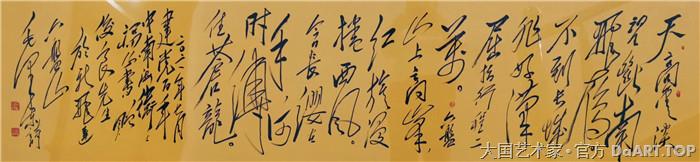 天高雲淡
望斷南
飛雁
不到长城
非好漢
屈指行程二
萬。六盤
山上高峰
红旗漫
捲西风。
今日长缨在
手何
时缚
住蒼龍。
二〇二一年七月
建党百年
先生
六盘山
毛泽东词
大国艺术家·官方 DaART.TOP